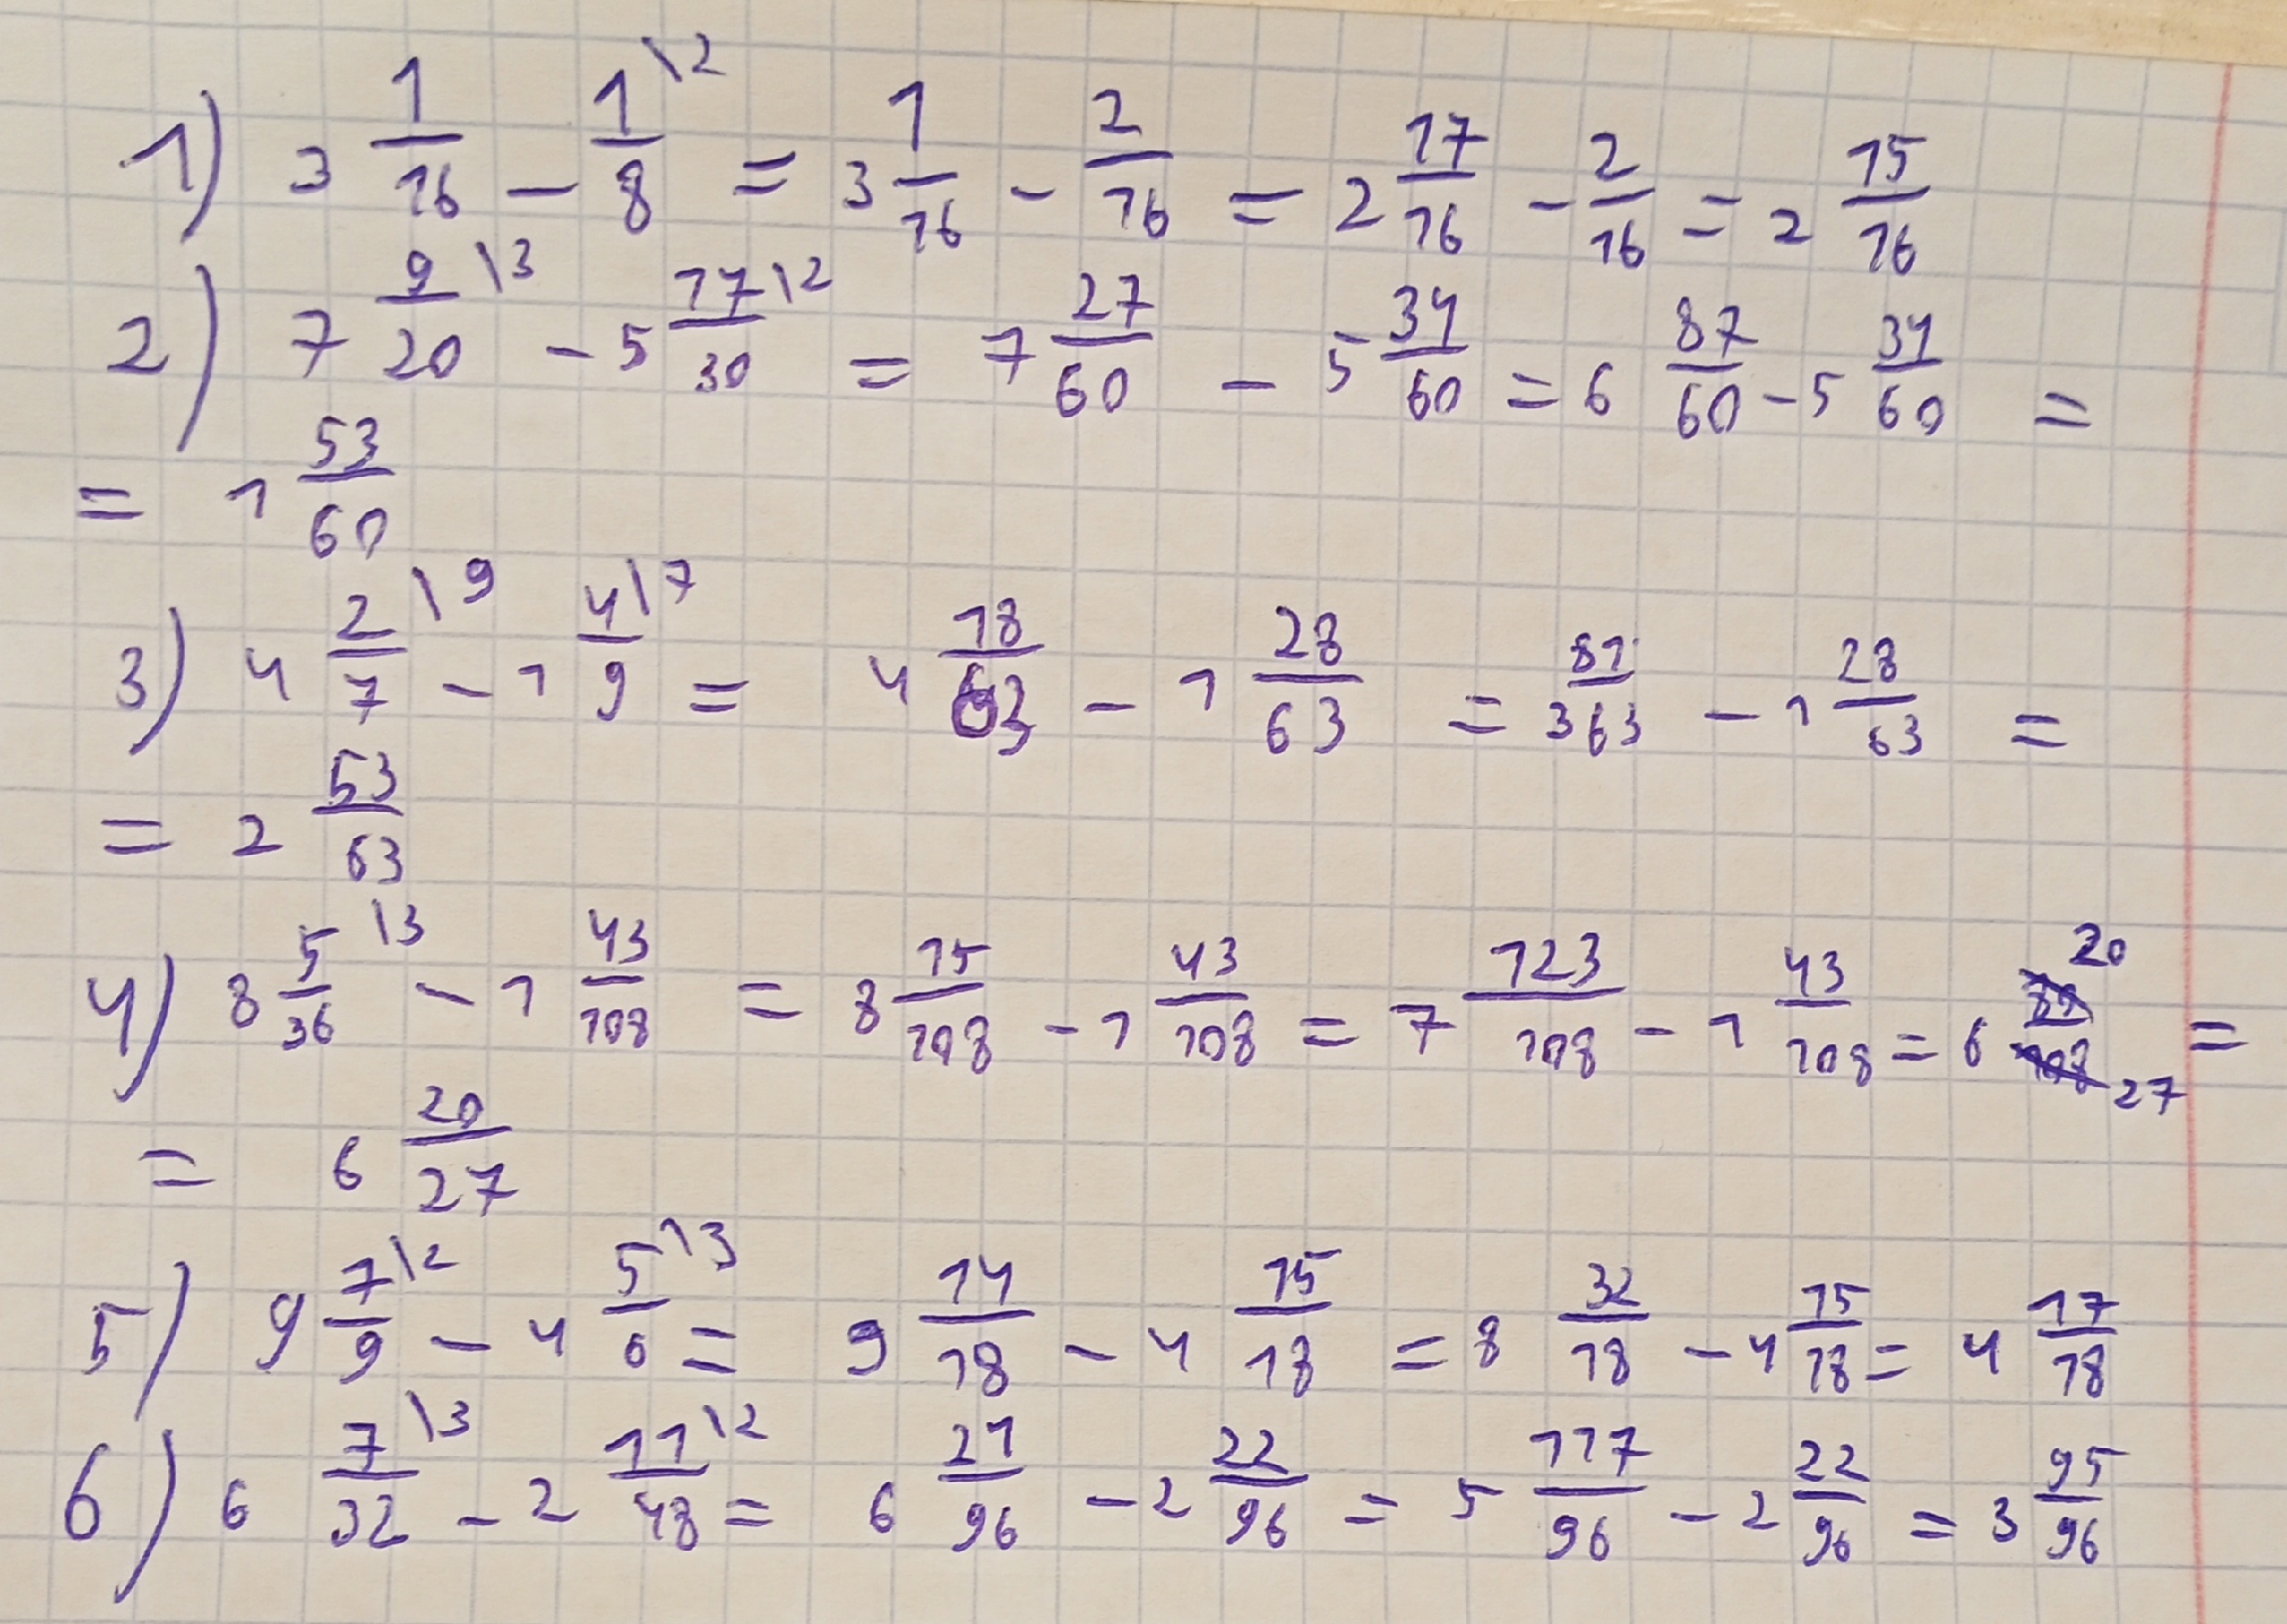 1) 3 1/16 - 1/8 \2 = 3 1/16 - 2/16 = 2 17/16 - 2/16 = 2 15/16
2) 7 9/20 \3 - 5 17/30 \2 = 7 27/60 - 5 34/60 = 6 87/60 - 5 34/60 =
= 1 53/60
3) 4 2/7 \9 - 1 4/9 \7 = 4 18/63 - 1 28/63 = 3 81/63 - 1 28/63 =
= 2 53/63
4) 8 5/36 \3 - 1 43/108 = 8 15/108 - 1 43/108 = 7 123/108 - 1 43/108 = 6 20/27 =
= 6 20/27
5) 9 7/9 \2 - 4 5/6 \3 = 9 14/18 - 4 15/18 = 8 32/18 - 4 15/18 = 4 17/18
6) 6 7/32 \3 - 2 11/48 \2 = 6 21/96 - 2 22/96 = 5 117/96 - 2 22/96 = 3 95/96